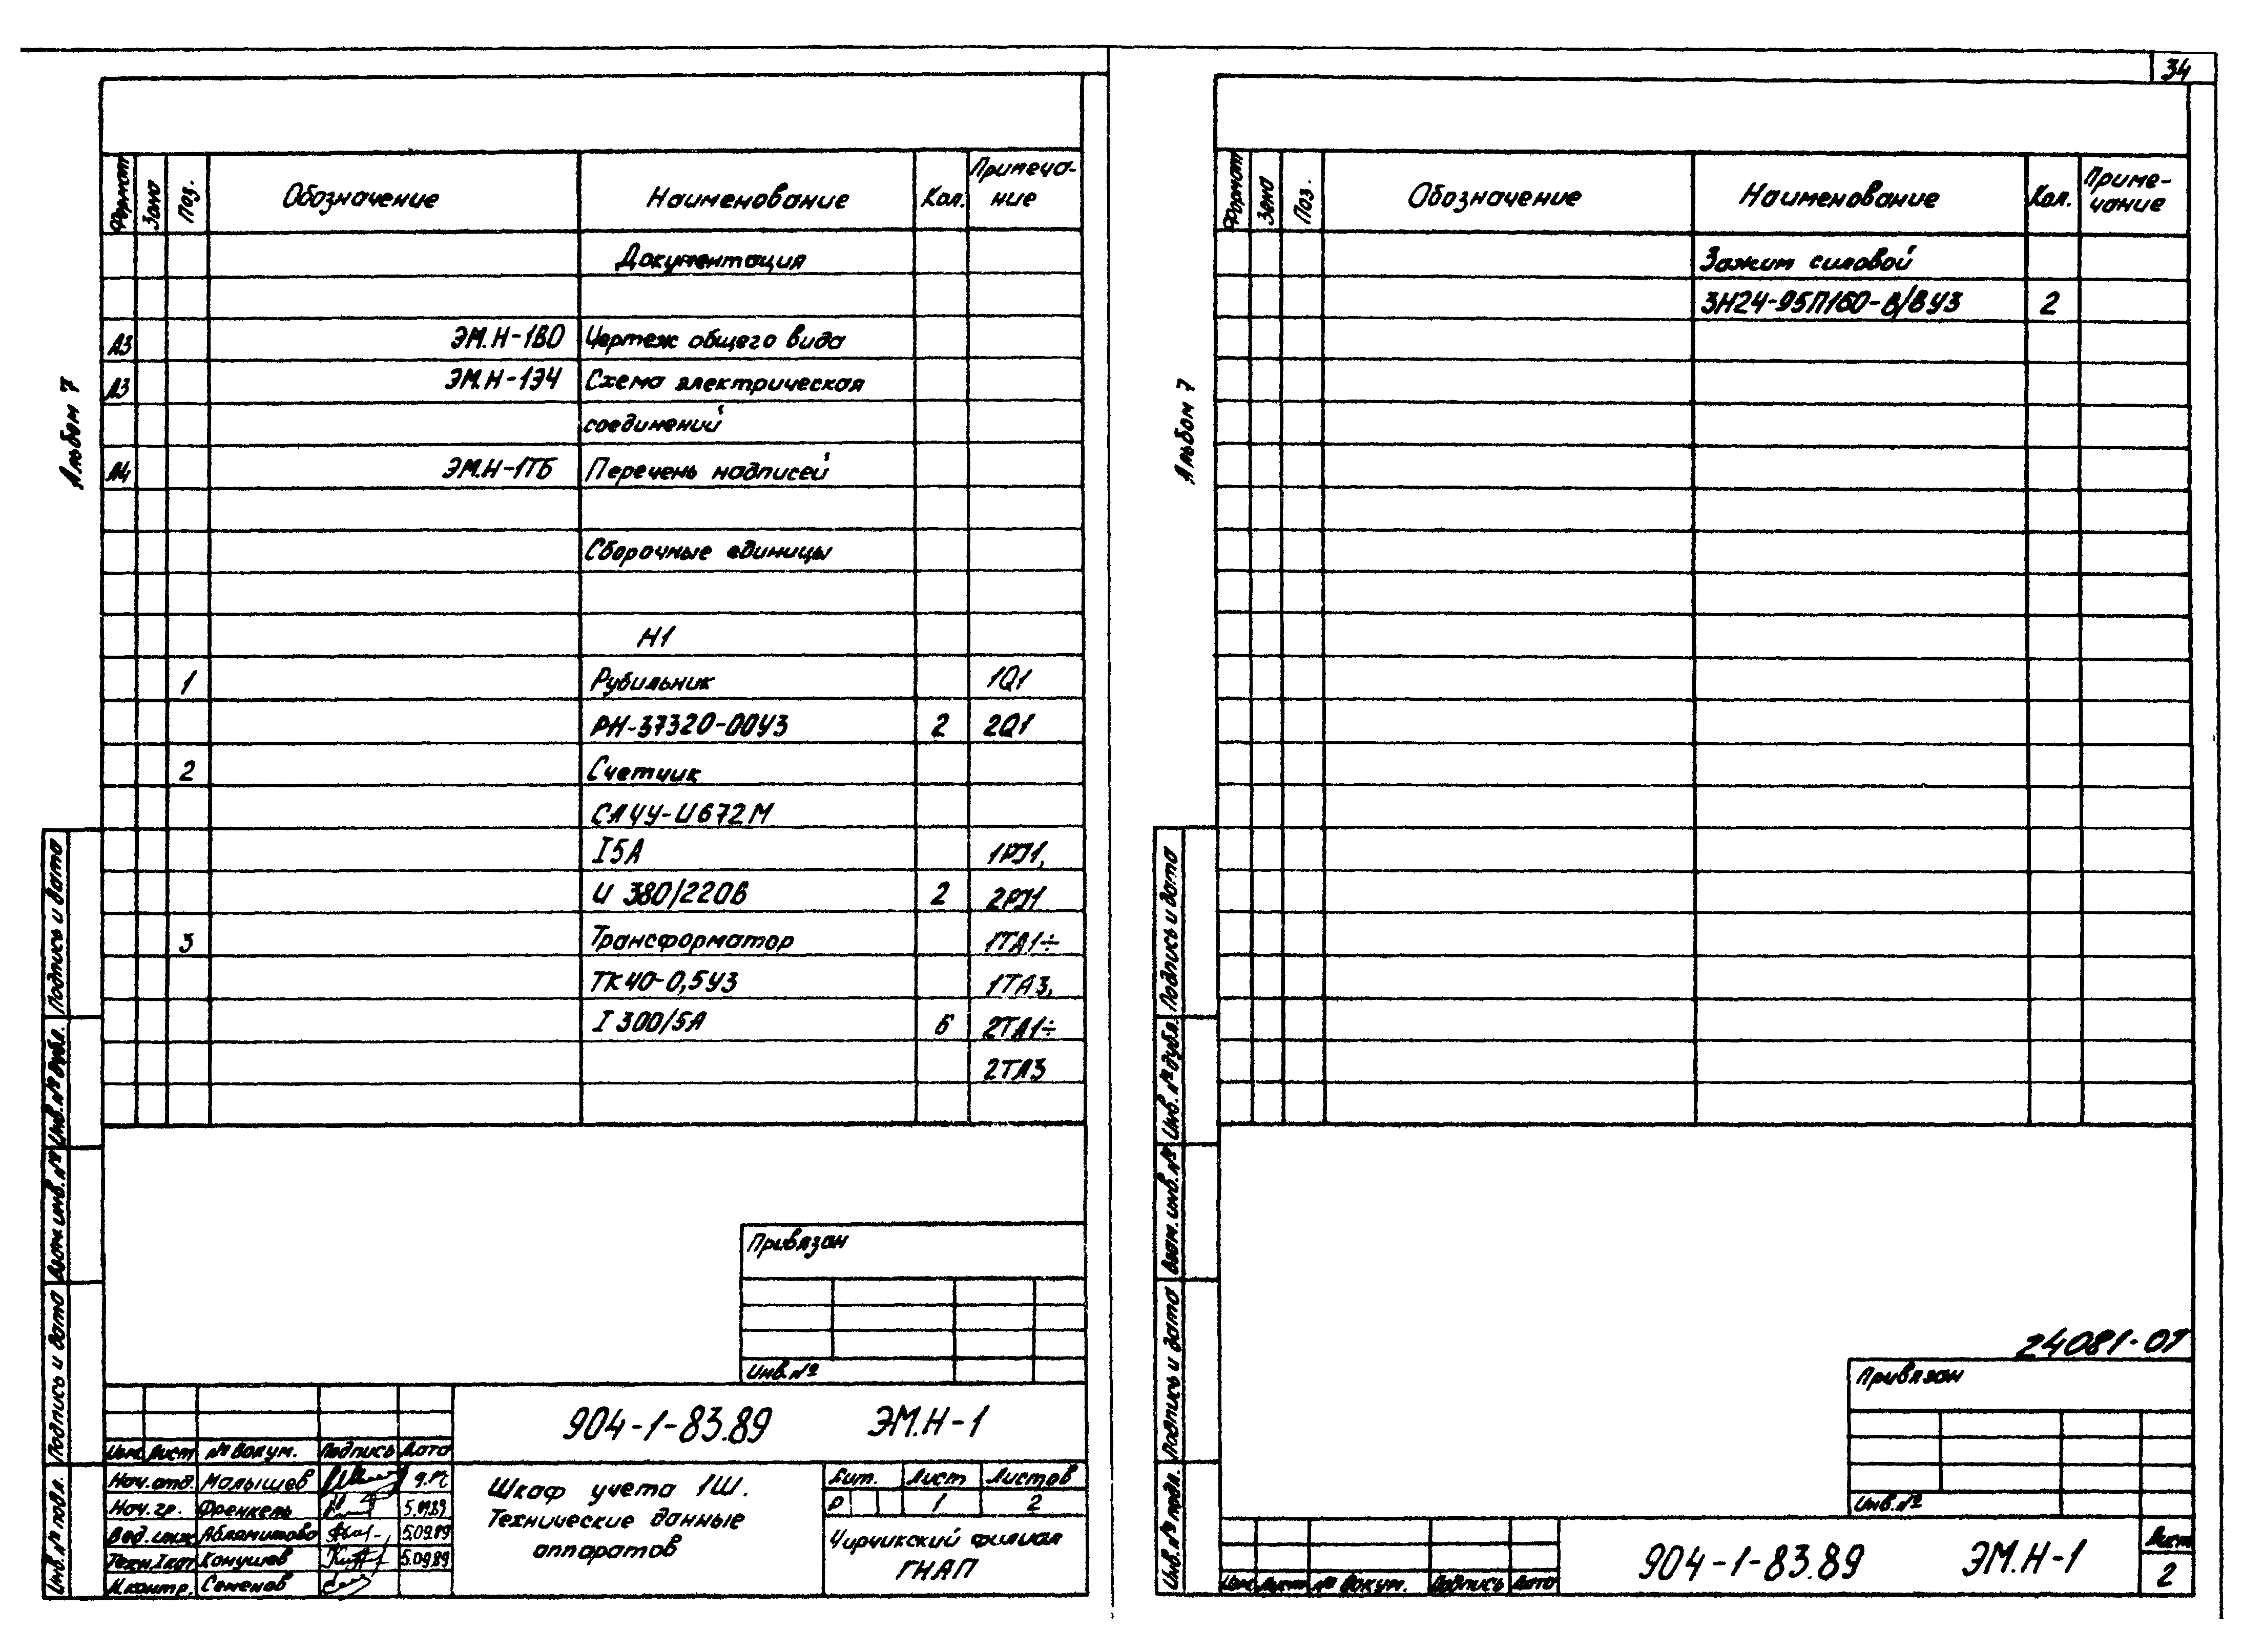 34
Альбом 7
Формат Зона Поз. Обозначение Наименование Кол. Примеча-
ние
Документация
А3 ЭМ.Н-1ВО Чертеж общего вида
А3 ЭМ.Н-1Э4 Схема электрическая
соединений
А4 ЭМ.Н-1ТБ Перечень надписей
Сборочные единицы
Н1
1 Рубильник 1Q1
РН-37320-00У3 2 2Q1
2 Счетчик
СА4У-И672М
I 5А 1PJ1,
U 380/220В 2 2PJ1
3 Трансформатор 1ТА1÷
ТК40-0,5У3 1ТА3,
I 300/5А 6 2ТА1÷
2ТА3
Подпись и дата
Инв.№ дубл.
Взам.инв.№
Подпись и дата
Инв.№ подл.
Привязан
Инв.№
904-1-83.89 ЭМ.Н-1
Изм Лист № докум. Подпись Дата
Нач.отд. Малышев
Нач.гр. Френкель 5.09.89
Вед.инж. 5.09.89
Техн.Iкат. Конушев 5.09.89
Н.контр. Семенов
Шкаф учета 1Ш.
Технические данные
аппаратов
Лит. Лист Листов
Р 1 2
Чирчикский филиал
ГНАП
Альбом 7
Формат Зона Поз. Обозначение Наименование Кол. Приме-
чание
Зажим силовой
ЗН24-95П160-В/ВУ3 2
Подпись и дата
Инв.№ дубл.
Взам.инв.№
Подпись и дата
Инв.№ подл.
24081-07
Привязан
Инв.№
904-1-83.89 ЭМ.Н-1
Изм Лист № докум. Подпись Дата
Лист
2